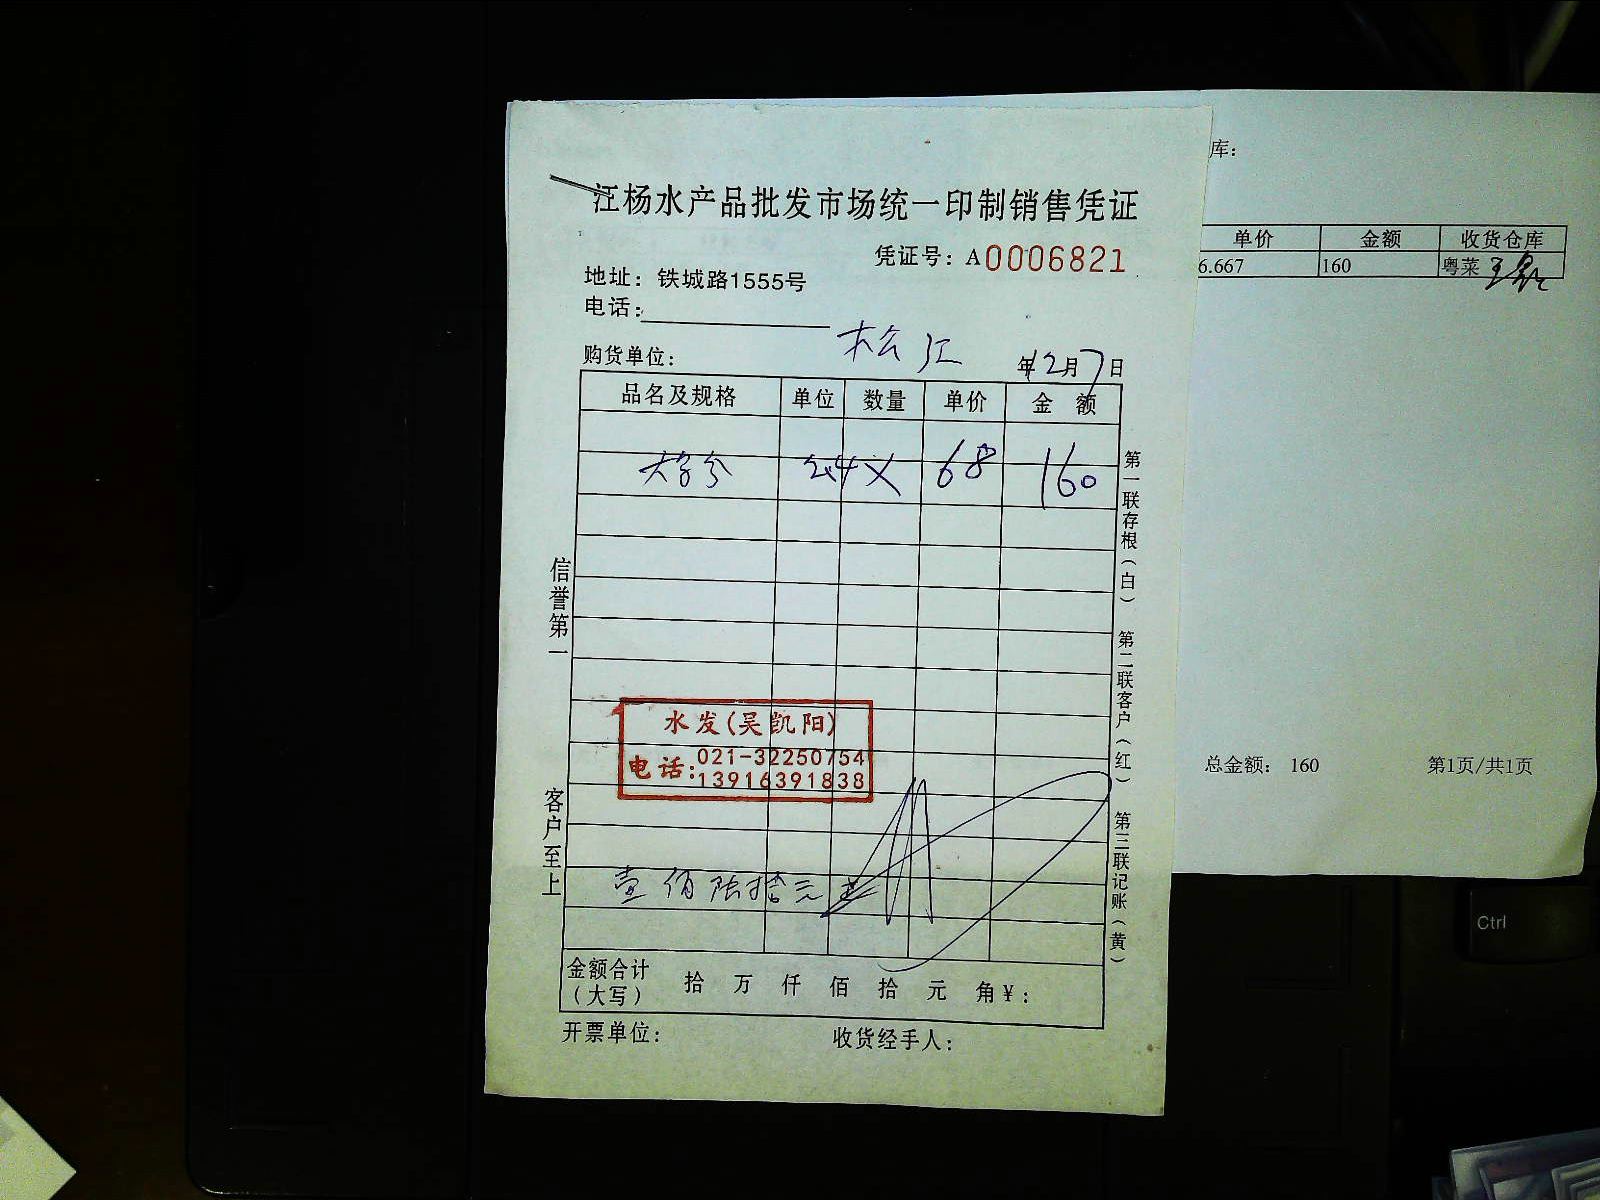 江杨水产品批发市场统一印制销售凭证
凭证号：A0006821
地址：铁城路1555号
电话：
购货单位： 松江 年12月7日
品名及规格 单位 数量 单价 金额
2.4 68 160
水发(吴凯阳)
电话：021-32250754
13916391838
壹佰陆拾元
金额合计（大写） 拾 万 仟 佰 拾 元 角￥：
开票单位： 收货经手人：
信誉第一
客户至上
第一联存根（白） 第二联客户（红） 第三联记账（黄）
库：
单价 金额 收货仓库
6.667 160 粤菜
总金额： 160 第1页/共1页
Ctrl